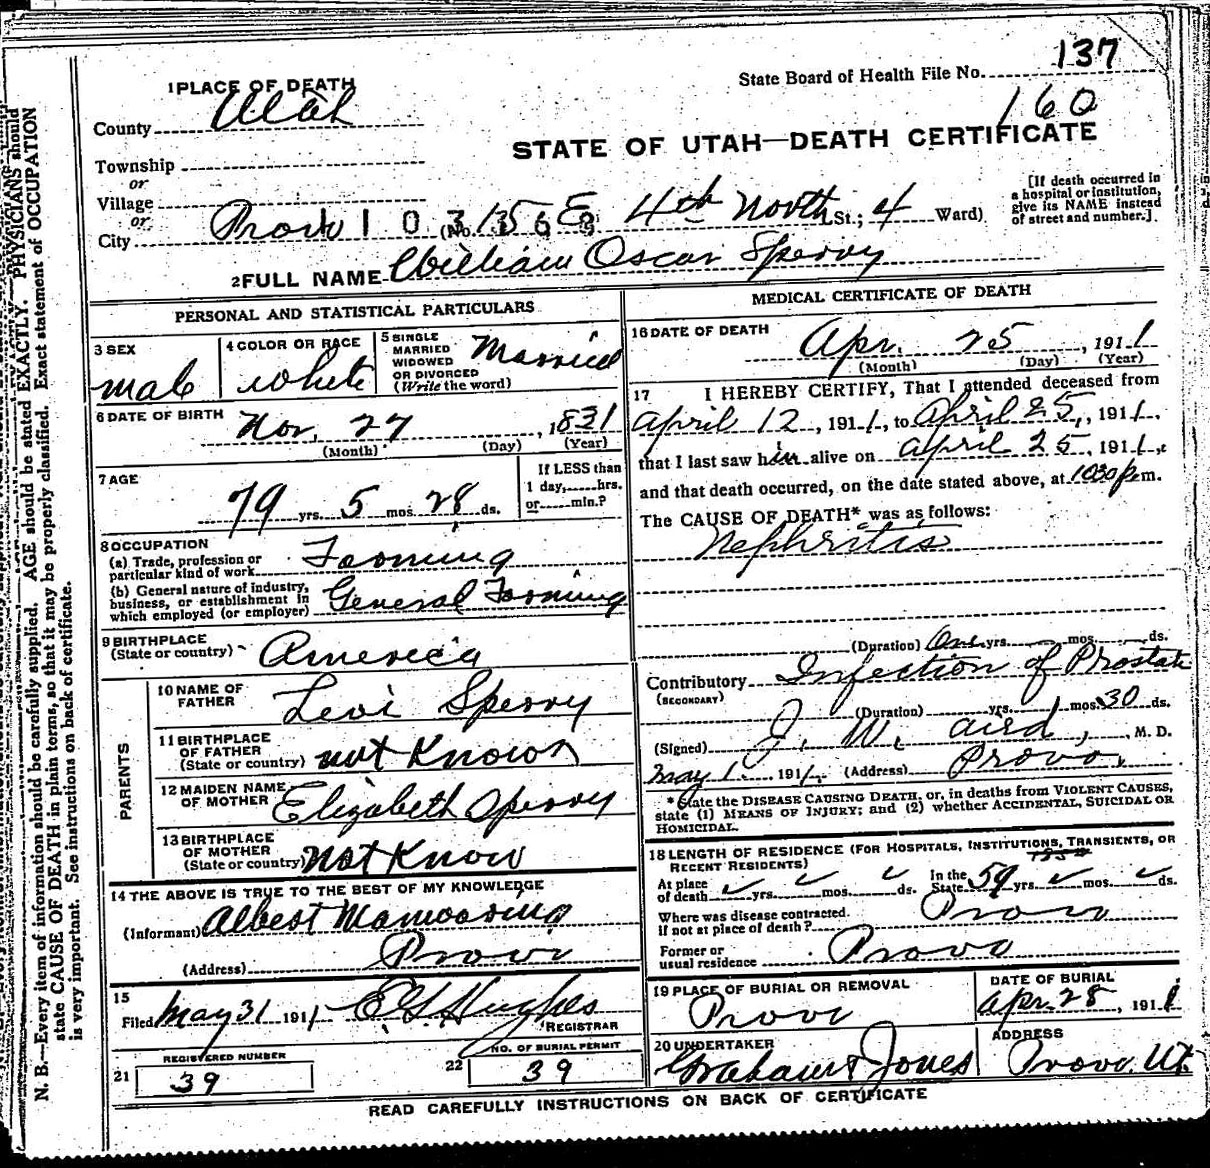 137
State Board of Health File No.
160
1 PLACE OF DEATH
County Utah
STATE OF UTAH—DEATH CERTIFICATE
Township
or
Village
or
City Provo 1 0 3 (No. 156 E 4th North St.; 4 Ward)
[If death occurred in
a hospital or institution,
give its NAME instead
of street and number.]
2 FULL NAME William Oscar Sperry
PERSONAL AND STATISTICAL PARTICULARS
3 SEX
male
4 COLOR OR RACE
white
5 SINGLE
MARRIED
WIDOWED
OR DIVORCED
(Write the word)
Married
6 DATE OF BIRTH
Nov. 27, 1831
(Month) (Day) (Year)
7 AGE
79 yrs. 5 mos. 28 ds.
If LESS than
1 day,......hrs.
or......min.?
8 OCCUPATION
(a) Trade, profession or
particular kind of work Farming
(b) General nature of industry,
business, or establishment in
which employed (or employer) General Farming
9 BIRTHPLACE
(State or country) America
PARENTS
10 NAME OF
FATHER
Levi Sperry
11 BIRTHPLACE
OF FATHER
(State or country) not Known
12 MAIDEN NAME
OF MOTHER
Elizabeth Sperry
13 BIRTHPLACE
OF MOTHER
(State or country) Not Know
14 THE ABOVE IS TRUE TO THE BEST OF MY KNOWLEDGE
(Informant) Albert Manwaring
(Address) Provo
15
Filed May 31 1911 E G Hughes
REGISTRAR
REGISTERED NUMBER
21 39
NO. OF BURIAL PERMIT
22 39
MEDICAL CERTIFICATE OF DEATH
16 DATE OF DEATH
Apr. 25, 1911
(Month) (Day) (Year)
17 I HEREBY CERTIFY, That I attended deceased from
April 12, 1911, to April 25, 1911,
that I last saw him alive on April 25, 1911,
and that death occurred, on the date stated above, at 1030 p m.
The CAUSE OF DEATH* was as follows:
Nephritis
(Duration) One yrs. mos. ds.
Contributory Infection of Prostate
(SECONDARY)
(Duration) yrs. mos. 30 ds.
(Signed) J. W. Aird, M. D.
May 1. 1911. (Address) Provo,
* State the DISEASE CAUSING DEATH, or, in deaths from VIOLENT CAUSES,
state (1) MEANS OF INJURY; and (2) whether ACCIDENTAL, SUICIDAL OR
HOMICIDAL.
18 LENGTH OF RESIDENCE (FOR HOSPITALS, INSTITUTIONS, TRANSIENTS, OR
RECENT RESIDENTS)
At place
of death yrs. mos. ds.
In the
State 59 yrs. mos. ds.
Where was disease contracted,
if not at place of death? Provo
Former or
usual residence Provo
19 PLACE OF BURIAL OR REMOVAL
Provo
DATE OF BURIAL
Apr. 28, 1911
20 UNDERTAKER
Graham & Jones
ADDRESS
Provo. Ut.
READ CAREFULLY INSTRUCTIONS ON BACK OF CERTIFICATE
N. B.—Every item of information should be carefully supplied. AGE should be stated EXACTLY. PHYSICIANS should
state CAUSE OF DEATH in plain terms, so that it may be properly classified. Exact statement of OCCUPATION
is very important. See instructions on back of certificate.